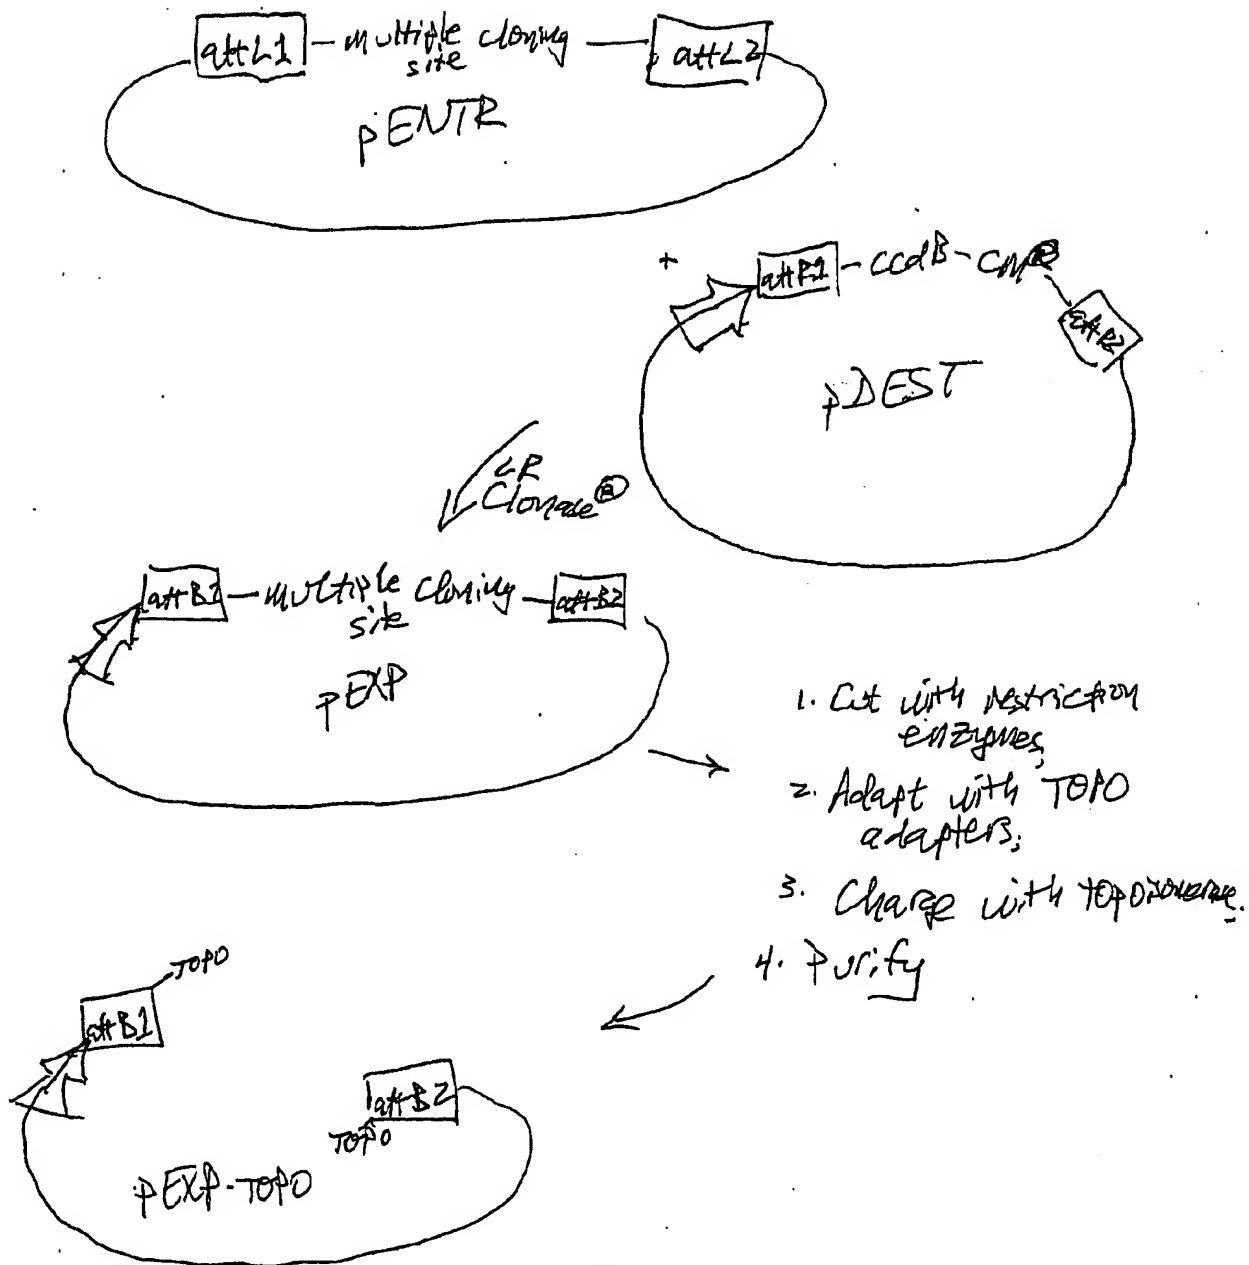 attL1 - multiple cloning - attL2
site
pENTR
+
attR1 - ccdB - CmR
attR2
pDEST
LR
Clonase®
attB1 - multiple cloning - attB2
site
pEXP
1. Cut with restriction
enzymes;
2. Adapt with TOPO
adapters;
3. Charge with topoisomerase.
4. Purify
TOPO
attB1
attB2
TOPO
pEXP-TOPO